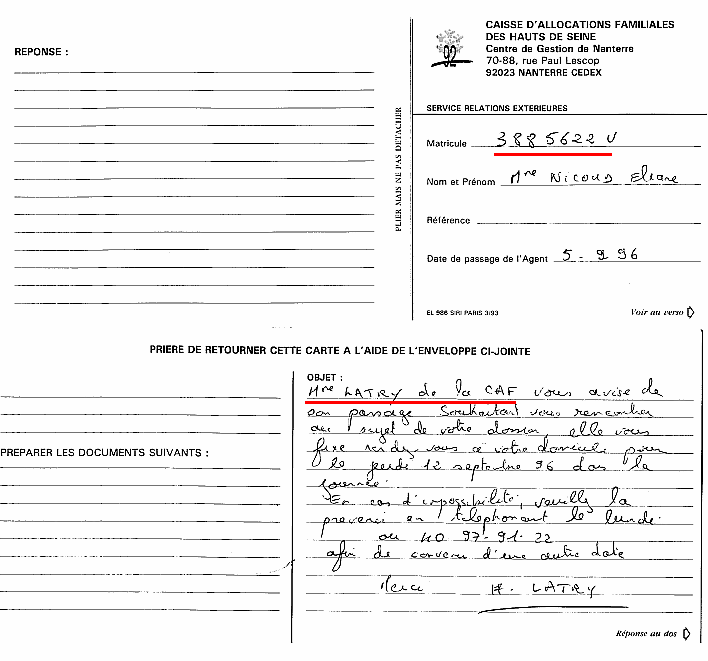 CAISSE D'ALLOCATIONS FAMILIALES
DES HAUTS DE SEINE
Centre de Gestion de Nanterre
70-88, rue Paul Lescop
92023 NANTERRE CEDEX
92
REPONSE :
PLIER MAIS NE PAS DETACHER
SERVICE RELATIONS EXTERIEURES
Matricule 3885622 U
Nom et Prénom Mme Nicoud Eliane
Référence
Date de passage de l'Agent 5-9 96
EL 986 SIRI PARIS 3/93
Voir au verso
PRIERE DE RETOURNER CETTE CARTE A L'AIDE DE L'ENVELOPPE CI-JOINTE
PREPARER LES DOCUMENTS SUIVANTS :
OBJET :
Mme LATRY de la CAF vous avise de
son passage Souhaitant vous rencontrer
au sujet de votre dossier elle vous
fixe rendez vous à votre domicile pour
le jeudi 12 septembre 96 dans la
journée.
En cas d'impossibilité, veuillez la
prevenir en telephonant le lundi
au 40 97-91-22
afin de convenir d'une autre date
Merci H. LATRY
Réponse au dos